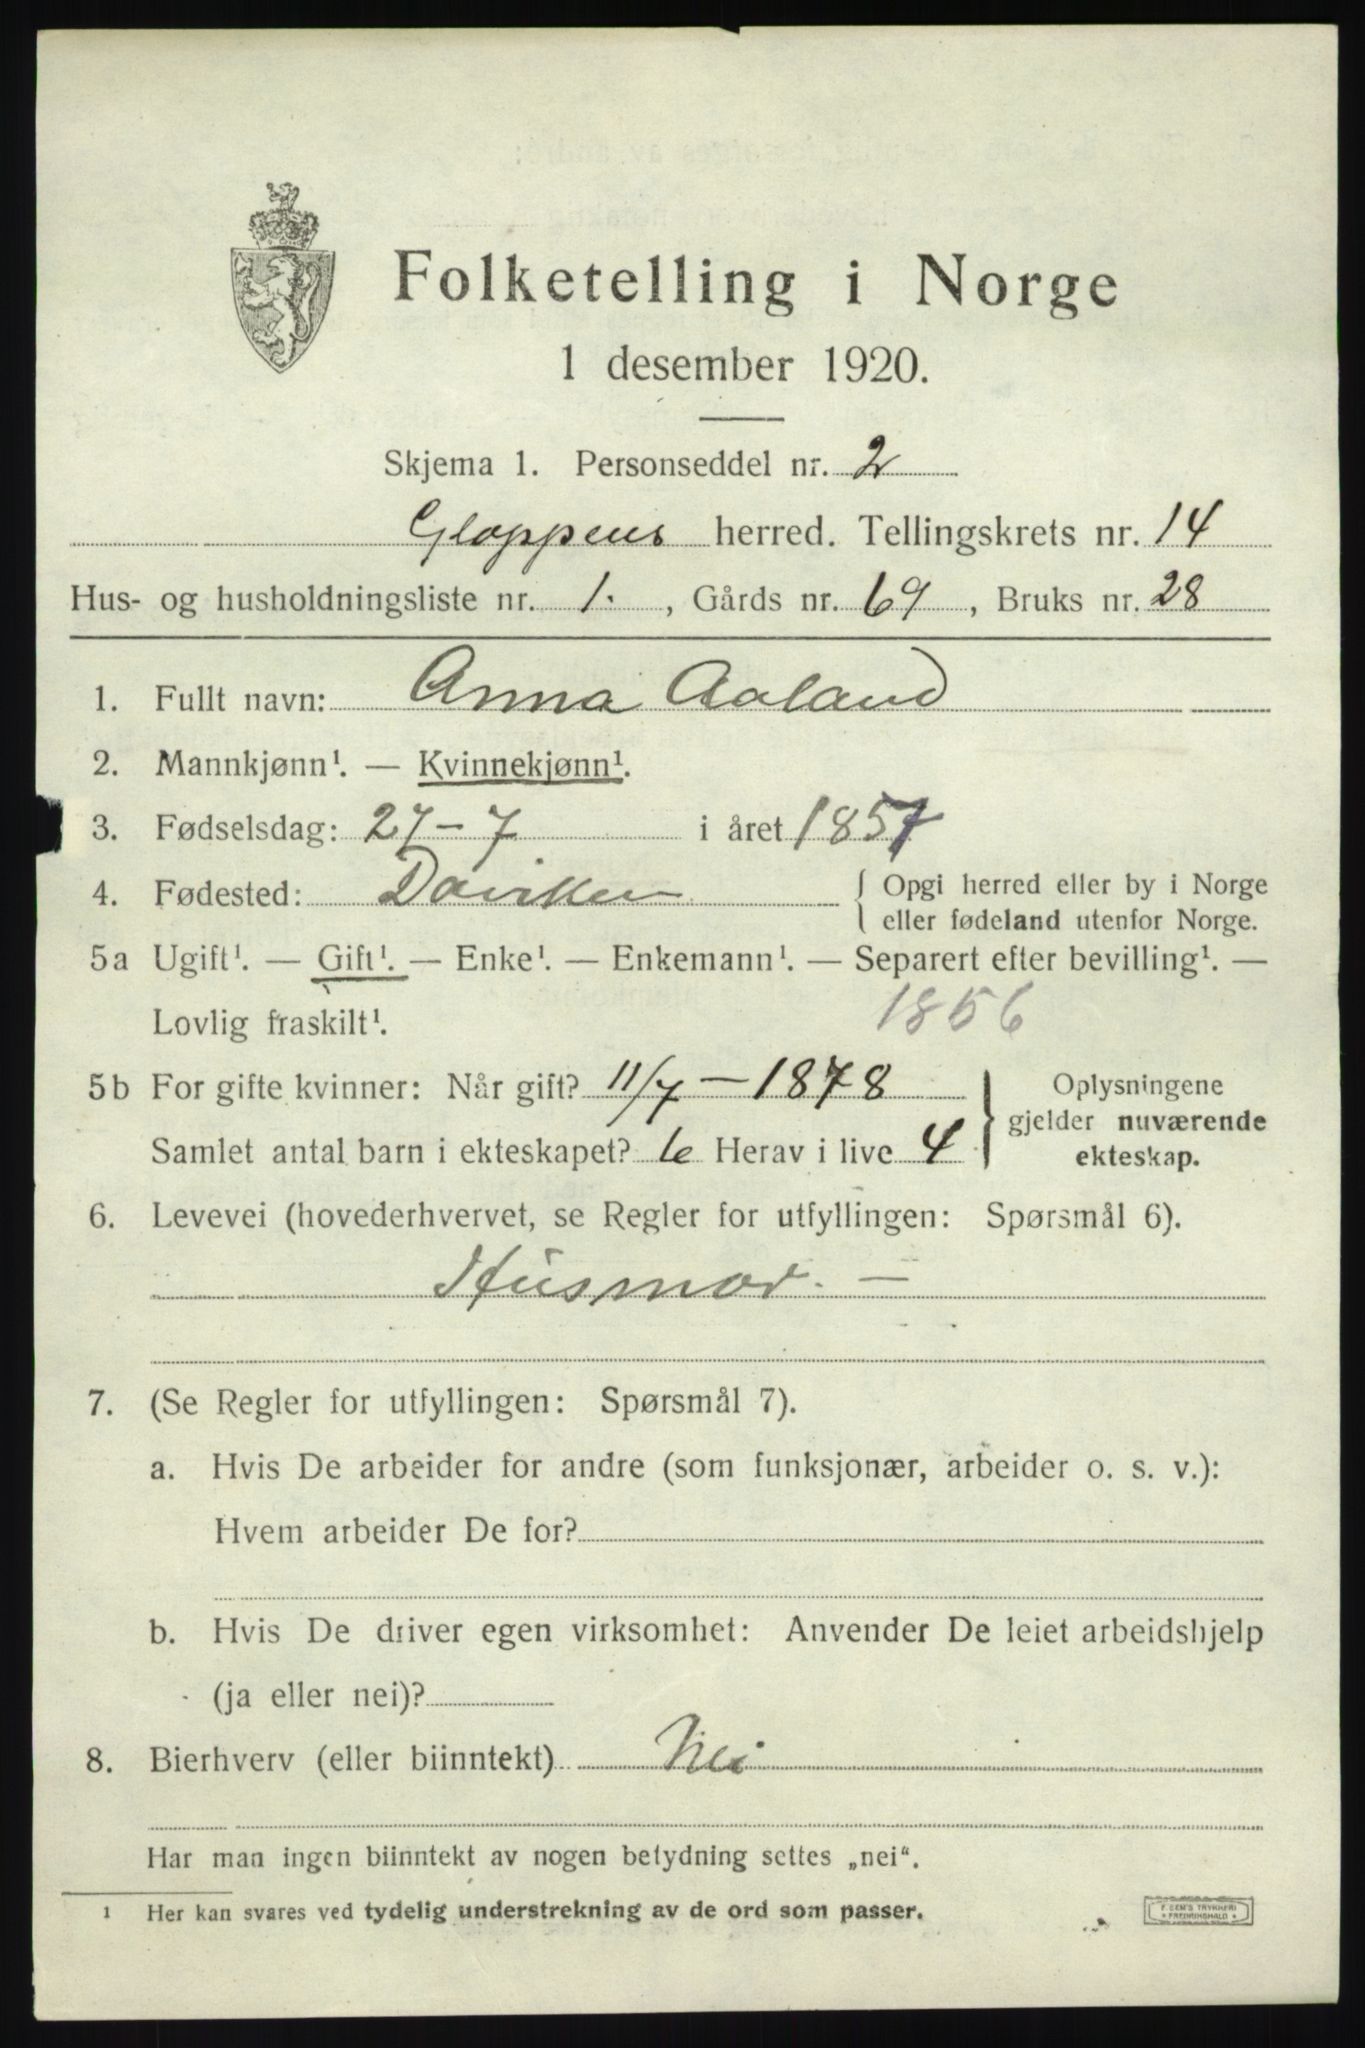 Folketelling i Norge
1 desember 1920.
Skjema 1. Personseddel nr. 2
Gloppens herred. Tellingskrets nr. 14
Hus- og husholdningsliste nr. 1. , Gårds nr. 69 , Bruks nr. 28
1. Fullt navn: Anna Aaland
2. Mannkjønn¹. — Kvinnekjønn¹.
3. Fødselsdag: 27-7 i året 1857
4. Fødested: Daviken { Opgi herred eller by i Norge
eller fødeland utenfor Norge.
5a Ugift¹. — Gift¹. — Enke¹. — Enkemann¹. — Separert efter bevilling¹. —
Lovlig fraskilt¹. 1856
5b For gifte kvinner: Når gift? 11/7 — 1878 } Oplysningene
gjelder nuværende
Samlet antal barn i ekteskapet? 6 Herav i live 4 ekteskap.
6. Levevei (hovederhvervet, se Regler for utfyllingen: Spørsmål 6).
Husmor. —
7. (Se Regler for utfyllingen: Spørsmål 7).
a. Hvis De arbeider for andre (som funksjonær, arbeider o. s. v.):
Hvem arbeider De for?
b. Hvis De driver egen virksomhet: Anvender De leiet arbeidshjelp
(ja eller nei)?
8. Bierhverv (eller biinntekt) Nei
Har man ingen biinntekt av nogen betydning settes „nei“.
1 Her kan svares ved tydelig understrekning av de ord som passer.
F. SEM'S TRYKKERI
FREDRIKSHALD